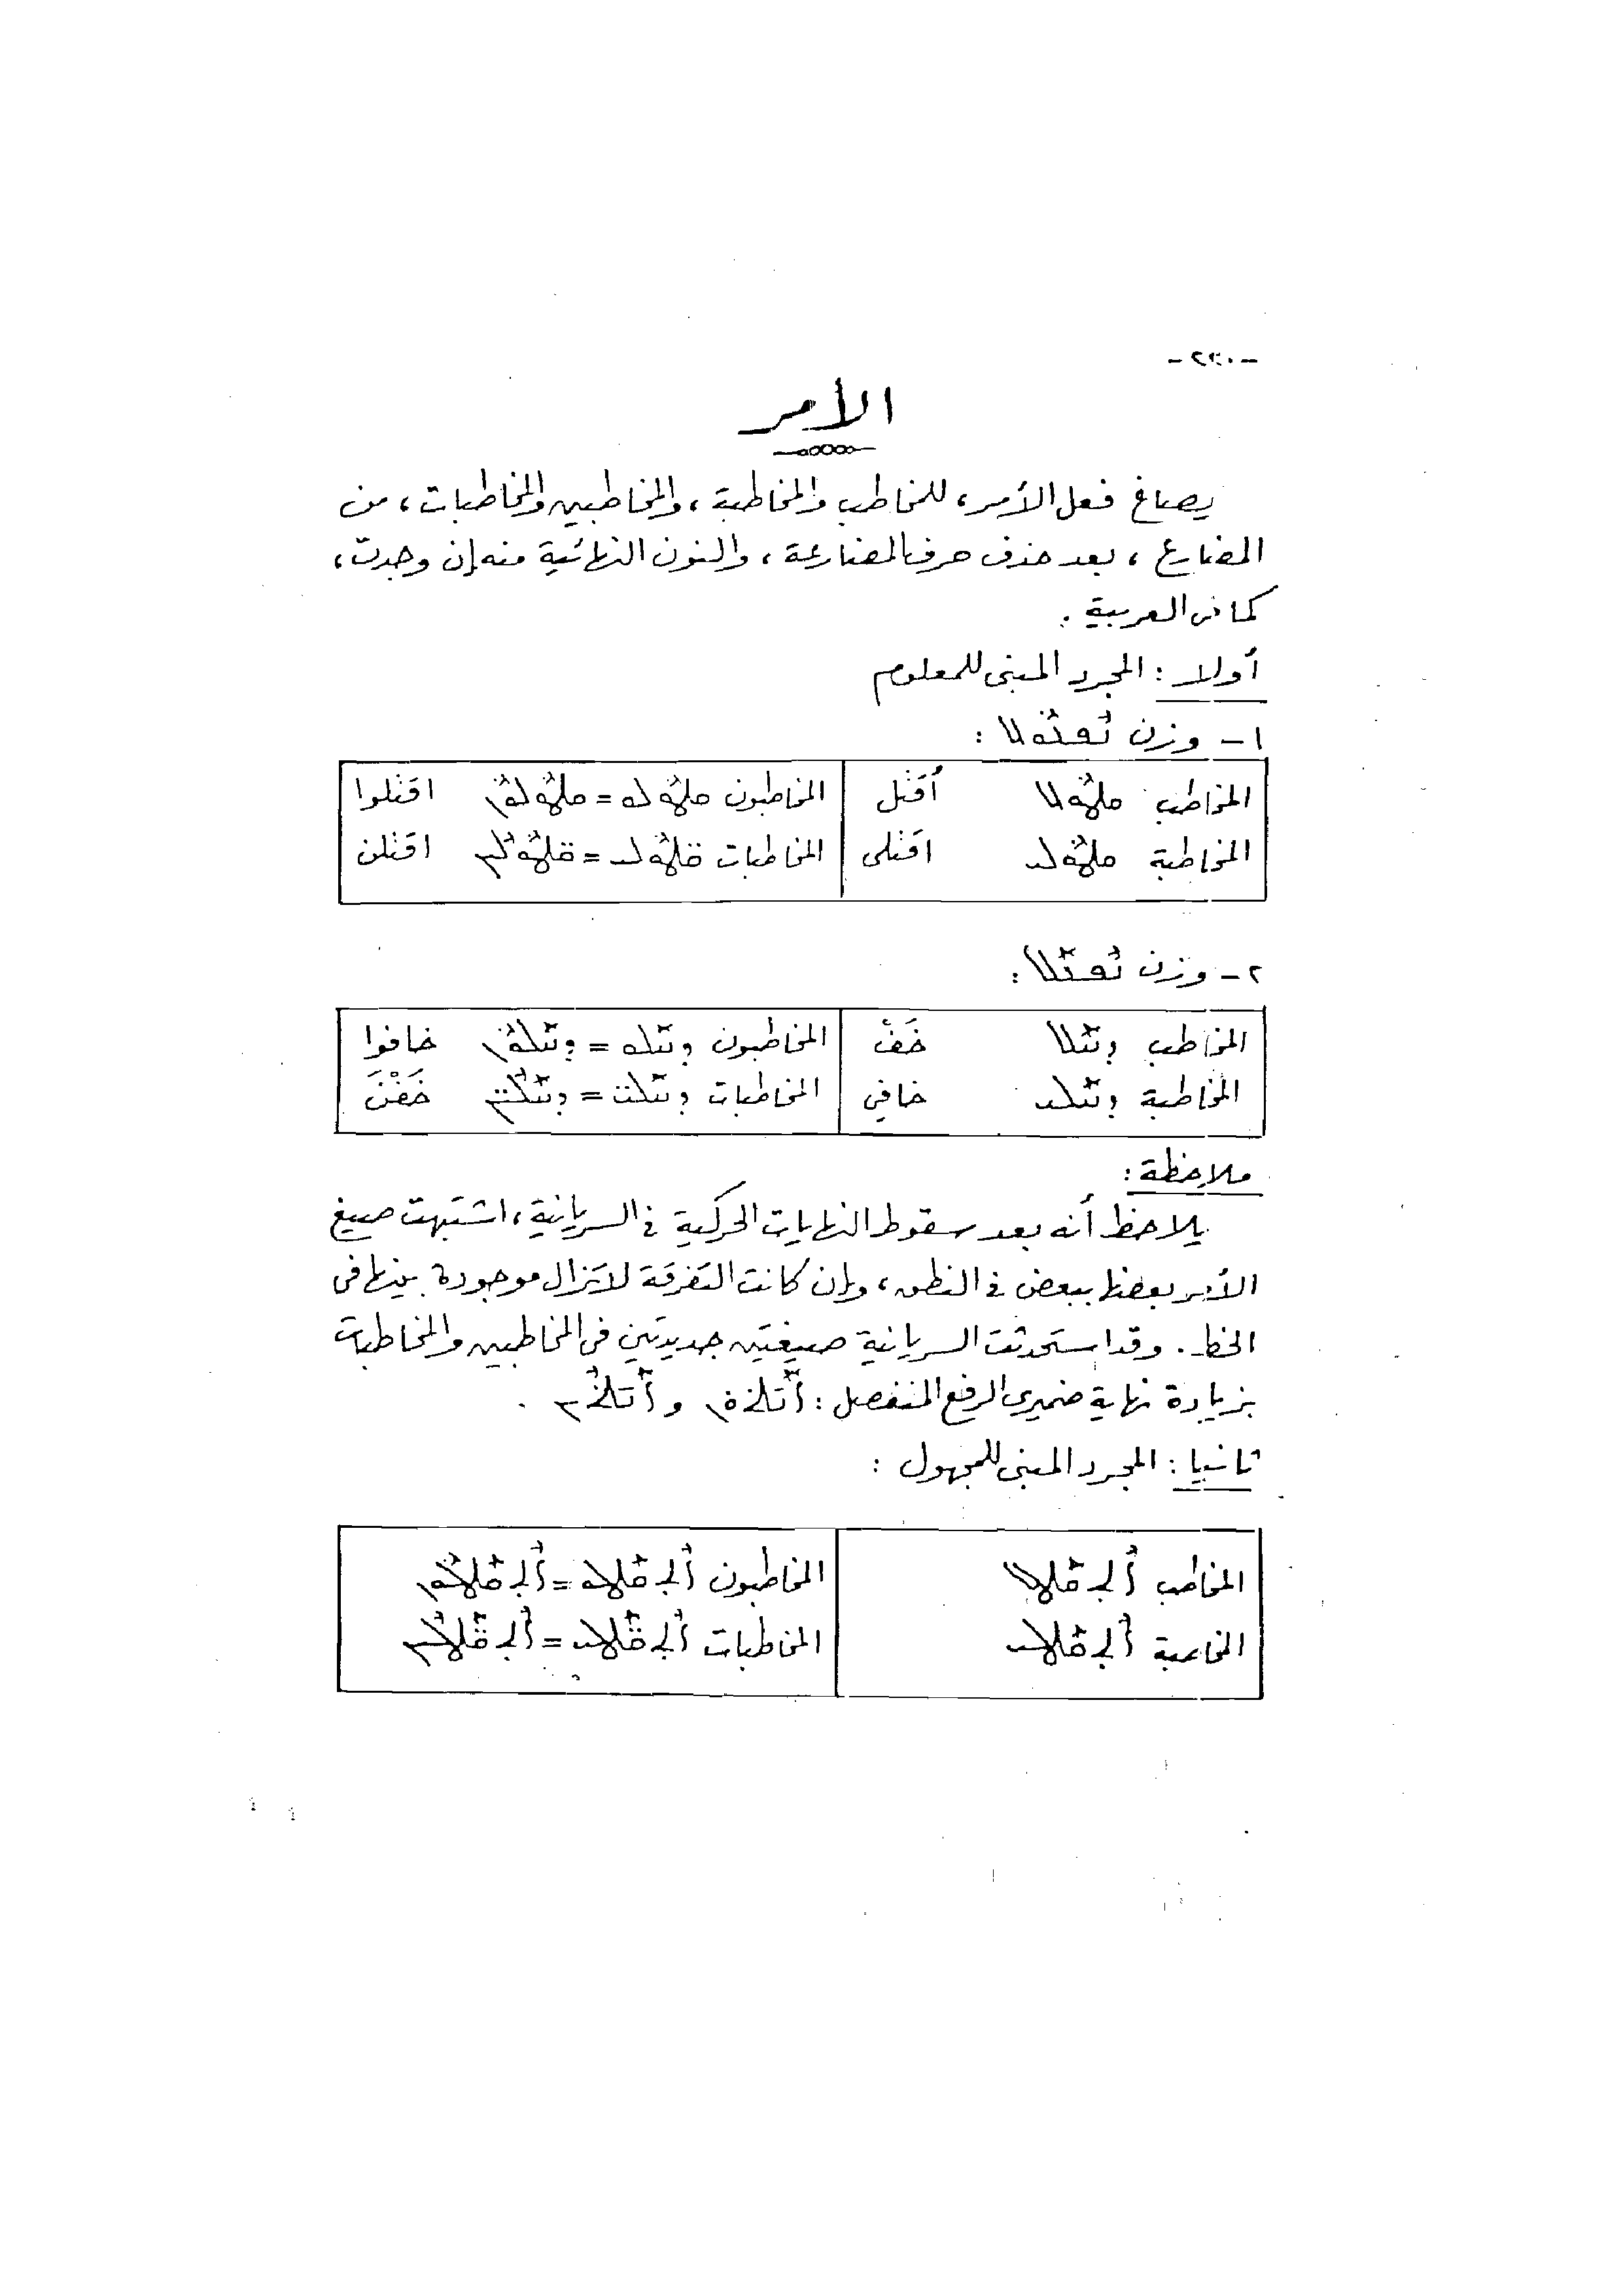 الأمر
يصاغ فعل الأمر، للمخاطب والمخاطبة، والمخاطبين والمخاطبات، من
المضارع، بعد حذف حرف المضارعة، والنون النهائية منه إن وجدت،
كما فى العربية.
أولا: المجرد المبنى للمعلوم
١- وزن ܢܦܥܘܠ:
المخاطب ܩܛܘܠ اُقتُل المخاطبون ܩܛܘܠܘ = ܩܛܘܠܘܢ اقتلوا
المخاطبة ܩܛܘܠܝ اقتلى المخاطبات ܩܛܘܠܝ = ܩܛܘܠܝܢ اقتلن
٢- وزن ܢܦܥܠ:
المخاطب ܕܚܠ خَفْ المخاطبون ܕܚܠܘ = ܕܚܠܘܢ خافوا
المخاطبة ܕܚܠܝ خافي المخاطبات ܕܚܠܝ = ܕܚܠܝܢ خَفْنَ
ملاحظة:
يلاحظ أنه بعد سقوط النهايات الحركية فى السريانية، اشتبهت صيغ
الأمر بعضها ببعض فى النطق، وإن كانت التفرقة لا تزال موجودة بينها فى
الخط. وقد استحدثت السريانية صيغتين جديدتين فى المخاطبين والمخاطبات
بزيادة نهاية ضميرى الرفع المنفصل: ܐܢܬܘܢ و ܐܢܬܝܢ.
ثانيا: المجرد المبنى للمجهول:
المخاطب ܐܬܩܛܠ المخاطبون ܐܬܩܛܠܘ = ܐܬܩܛܠܘܢ
المخاطبة ܐܬܩܛܠܝ المخاطبات ܐܬܩܛܠܝ = ܐܬܩܛܠܝܢ